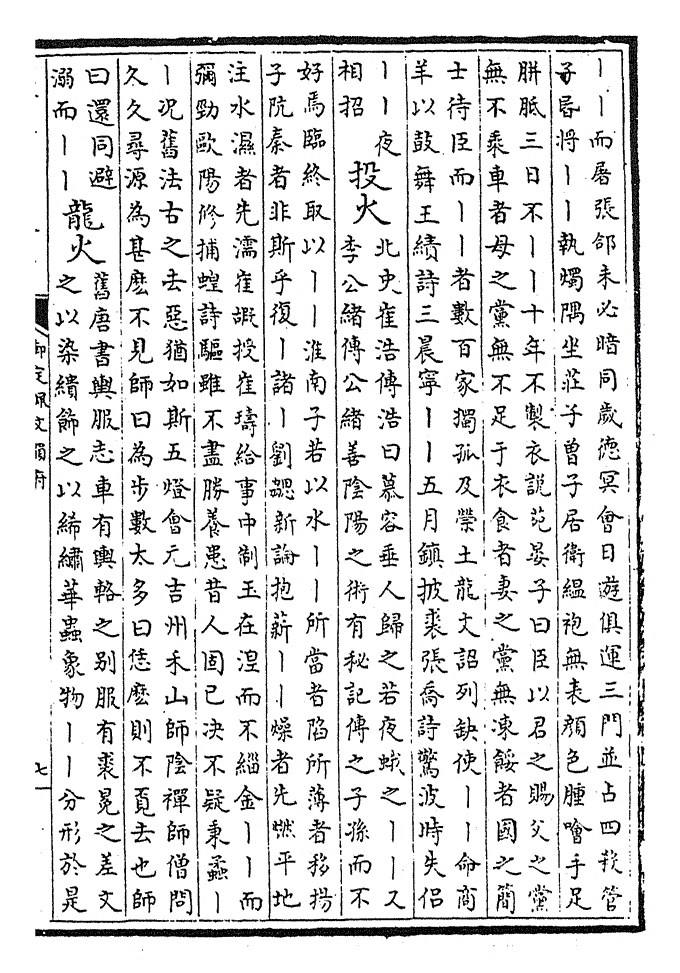 丨丨而屠張郃未必暗同歲德冥會日遊俱運三門並占四稔管
子昬將丨丨執燭隅坐莊子曽子居衛緼袍無表顔色腫噲手足
胼胝三日不丨丨十年不製衣說苑晏子曰臣以君之賜父之黨
無不乘車者母之黨無不足于衣食者妻之黨無凍餒者國之簡
士待臣而丨丨者數百家獨孤及滎土龍文詔列缺使丨丨命商
羊以鼓舞王績詩三晨寧丨丨五月鎮披裘張喬詩驚波時失侶
丨丨夜
相招
投火
北史崔浩傳浩曰慕容垂人歸之若夜蛾之丨丨又
李公緒傳公緒善陰陽之術有秘記傳之子孫而不
好焉臨終取以丨丨淮南子若以水丨丨所當者陷所薄者移揚
子阬秦者非斯乎復丨諸丨劉勰新論抱薪丨丨燥者先燃平地
注水濕者先濡崔嘏授崔璹給事中制玉在湼而不緇金丨丨而
彌勁歐陽修捕蝗詩驅雖不盡勝養患昔人固已决不疑秉蟊丨
丨况舊法古之去惡猶如斯五燈會元吉州禾山師陰禪師僧問
久久尋源為甚麽不見師曰為步數太多曰恁麽則不覔去也師
曰還同避
溺而丨丨
龍火
舊唐書輿服志車有輿輅之别服有裘冕之差文
之以染繢飾之以絺繡華蟲象物丨丨分形於是
御定佩文韻府
七